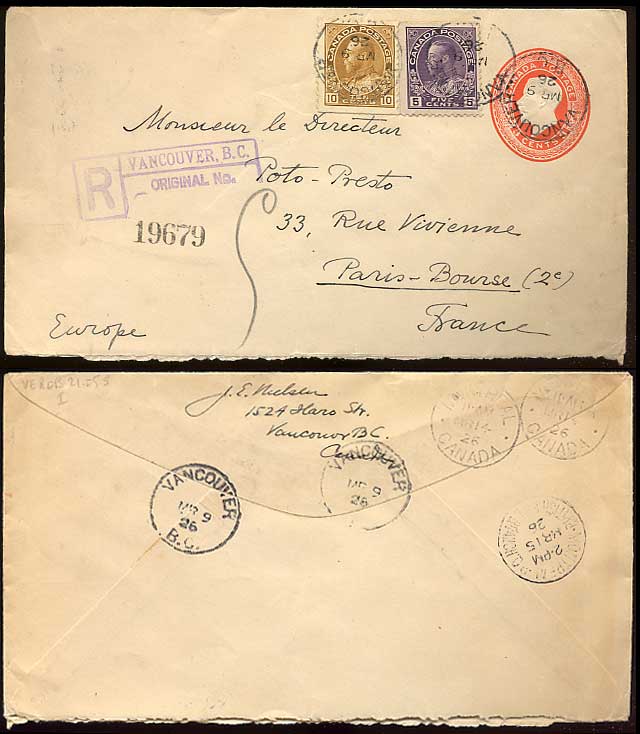 CANADA POSTAGE
10 CENTS 10
CANADA POSTAGE
5 FIVE CENTS 5
CANADA POSTAGE
CENTS
VANCOUVER
MR 9
26
Monsieur le Directeur
R
VANCOUVER, B.C.
ORIGINAL No.
Poto-Presto
19679
33, Rue Vivienne
Paris-Bourse (2e)
Europe
France
J.E. Nielsen
1524 Haro St.
Vancouver B.C.
Canada
MONTREAL
MR 14
26
CANADA
26
CANADA
VANCOUVER
MR 9
26
B.C.
VANCOUVER
MR 9
26
2-PM
MR 15
26